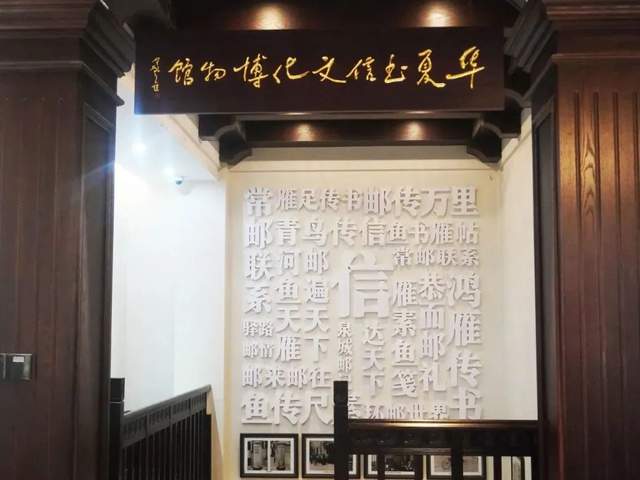 华夏书信文化博物馆
常 雁足传书 邮传万里
邮 青鸟传信 鱼书雁帖
联系 河鱼天雁 邮遍天下 信 常邮联系
雁素鱼笺 恭而邮礼 鸿雁传书
驿路邮情 泉城邮 达天下
邮来邮往
鱼传尺素 环邮世界